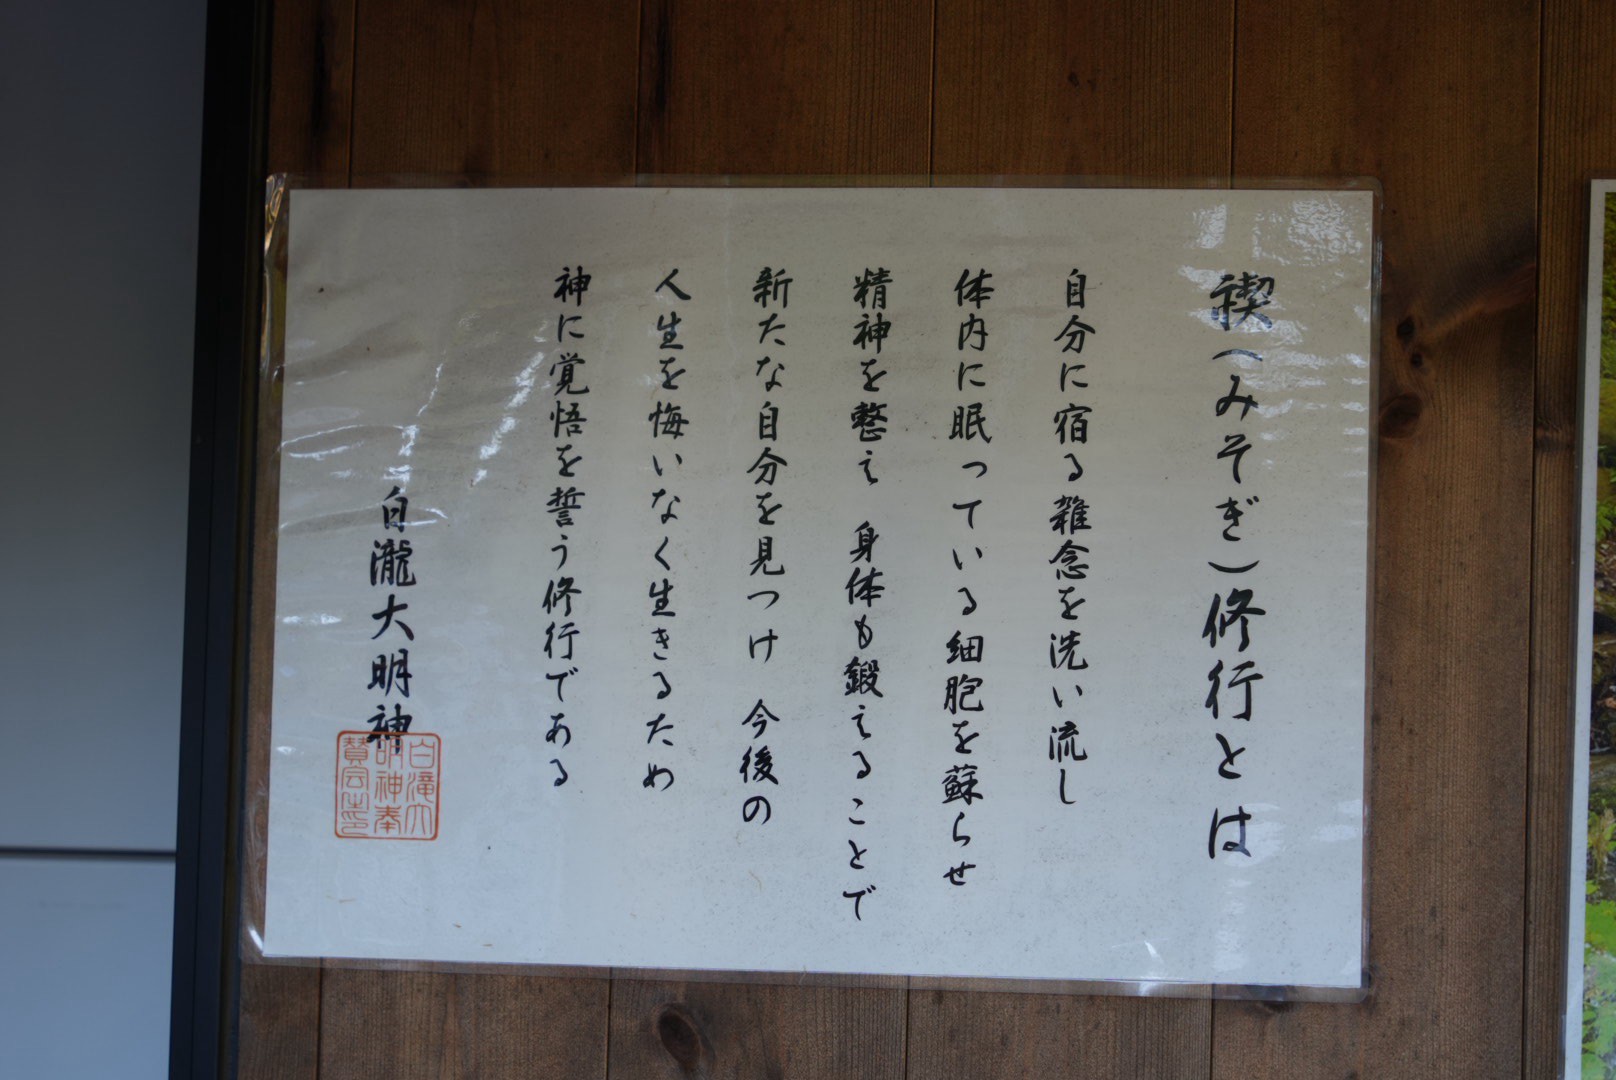 禊(みそぎ)修行とは
自分に宿る雑念を洗い流し
体内に眠っている細胞を蘇らせ
精神を整え 身体も鍛えることで
新たな自分を見つけ 今後の
人生を悔いなく生きるため
神に覚悟を誓う修行である
白瀧大明神
白滝大
明神奉
賛会之印